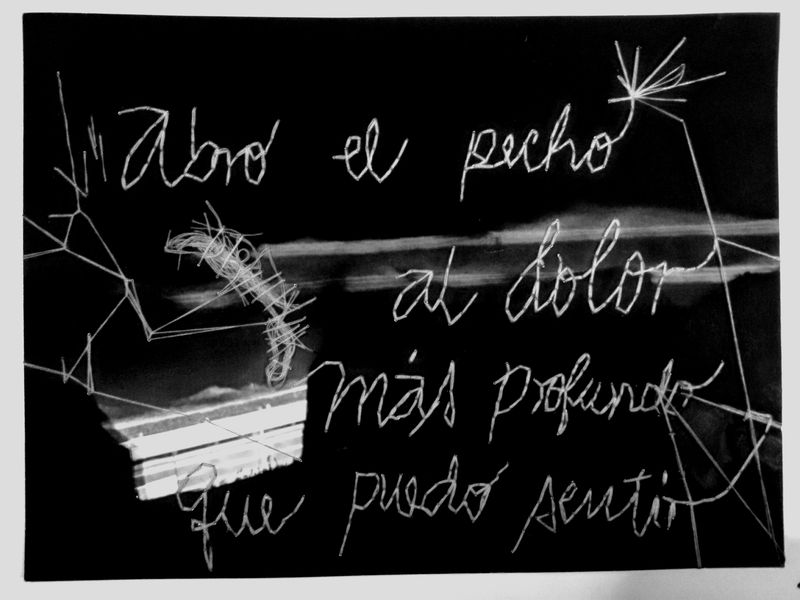 Abro el pecho
al dolor
más profundo
que puedo sentir